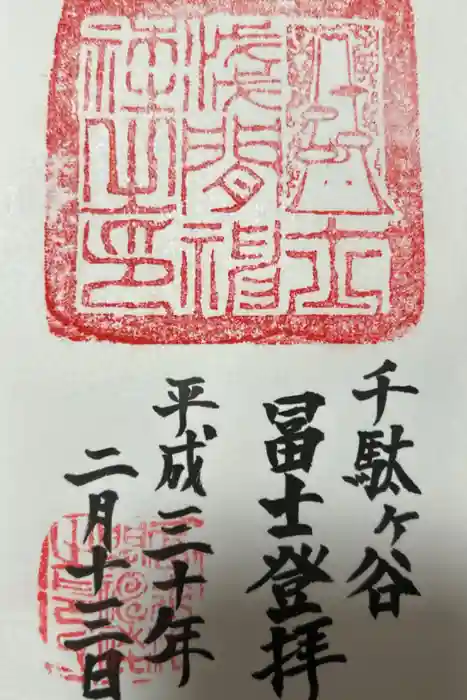 冨士
淺間神
社之印
千駄ヶ谷
冨士登拝
平成三十年
二月十三日